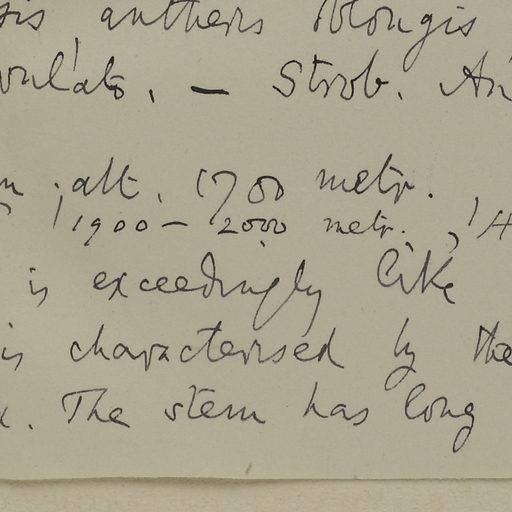 sis anthers oblongis
ovulato. — Strob. An
m; alt. 1700 metr.
1900 – 2000 metr., H
is exceedingly like
is characterised by the
x. The stem has long